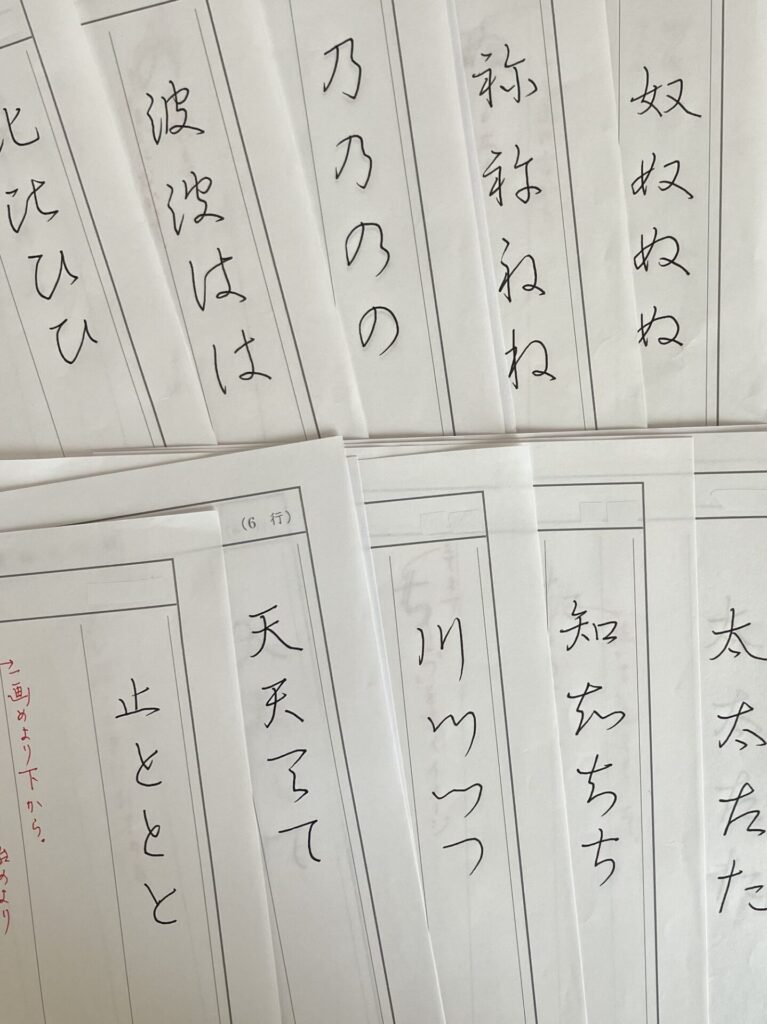 奴奴ぬぬ
祢祢ねね
乃乃のの
波波はは
比比ひひ
太太たた
知知ちち
川川つつ
(6 行)
天天てて
止ととと
二画めより下から.
めより